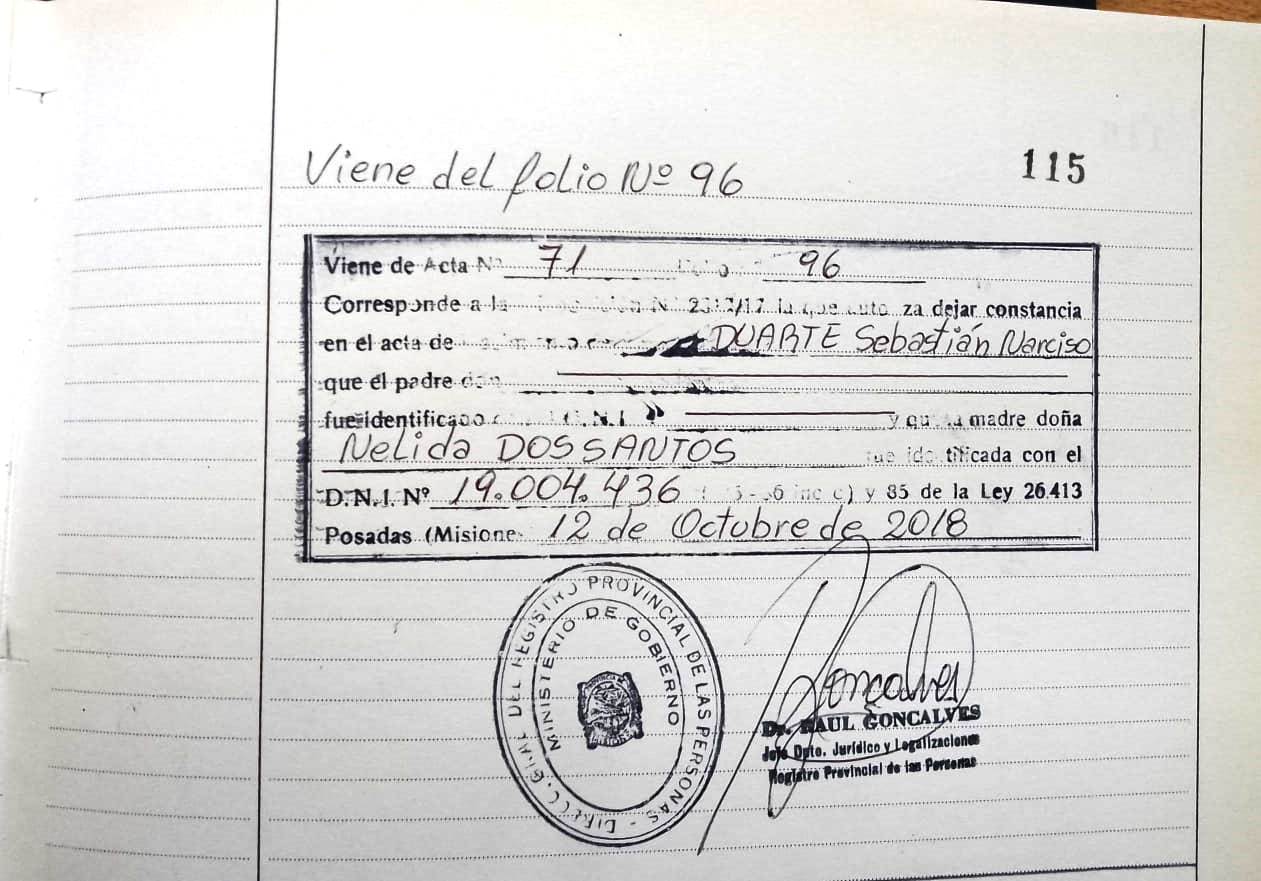 115
Viene del folio Nº 96
Viene de Acta Nº 71 96
Corresponde a la za dejar constancia
en el acta de DUARTE Sebastián Narciso
que el padre
fue identificado y madre doña
Nelida DOS SANTOS tificada con el
D.N.I. Nº 19.004.436 c) y 85 de la Ley 26.413
Posadas (Misione 12 de Octubre de 2018
DIRECC. GRAL DEL REGISTRO PROVINCIAL DE LAS PERSONAS
MINISTERIO DE GOBIERNO
Goncalves
Dr. RAUL GONCALVES
Jefe Dpto. Jurídico y Legalizaciones
Registro Provincial de las Personas